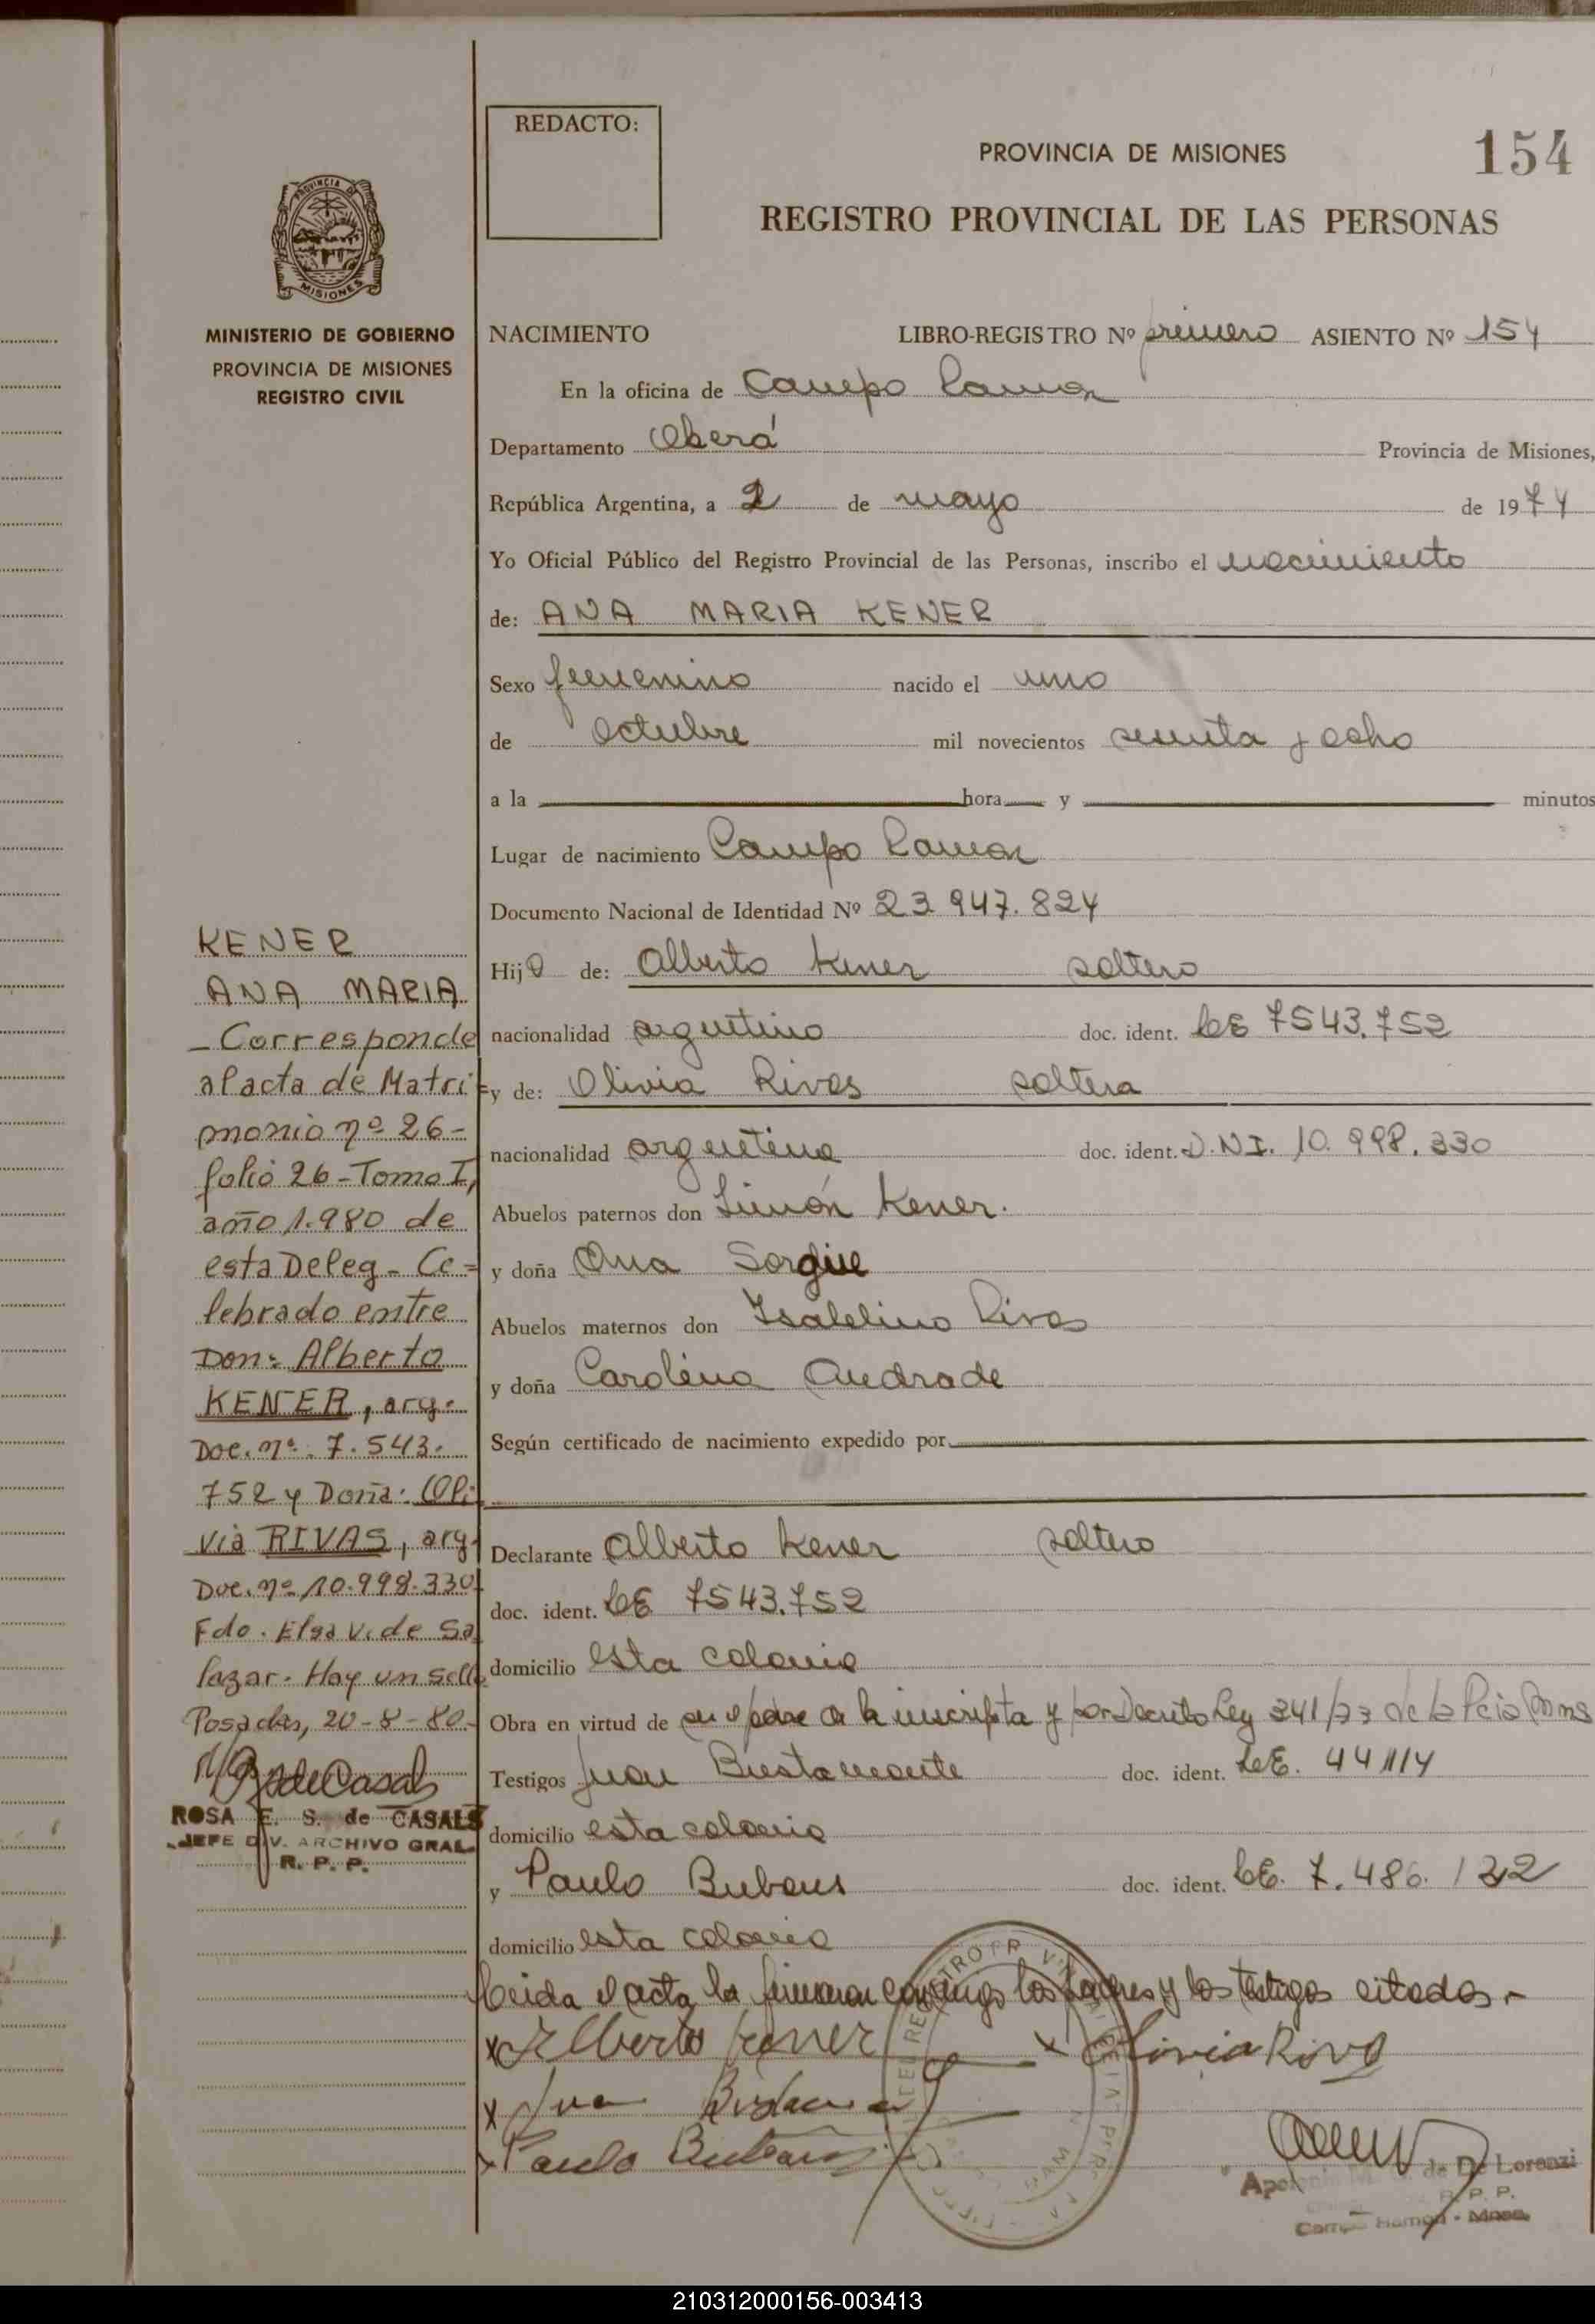 REDACTO:
PROVINCIA DE MISIONES
154
REGISTRO PROVINCIAL DE LAS PERSONAS
PROVINCIA DE
MISIONES
MINISTERIO DE GOBIERNO
PROVINCIA DE MISIONES
REGISTRO CIVIL
NACIMIENTO LIBRO-REGISTRO Nº primero ASIENTO Nº 154
En la oficina de Campo Ramon
Departamento Oberá Provincia de Misiones,
República Argentina, a 2 de mayo de 1974
Yo Oficial Público del Registro Provincial de las Personas, inscribo el nacimiento
de: ANA MARIA KENER
Sexo femenino nacido el uno
de octubre mil novecientos sesenta y ocho
a la hora y minutos
Lugar de nacimiento Campo Ramon
Documento Nacional de Identidad Nº 23.947.824
Hija de: Alberto Kener soltero
nacionalidad argentino doc. ident. LE 7543.752
y de: Olivia Rivas soltera
nacionalidad argentina doc. ident. D.N.I. 10.998.330
Abuelos paternos don Simón Kener.
y doña Ana
Abuelos maternos don Isabelino Rivas
y doña Carolina Andrade
Según certificado de nacimiento expedido por
Declarante Alberto Kener soltero
doc. ident. LE 7543.752
domicilio esta colonia
Obra en virtud de ser el padre de la inscripta y por Decreto Ley 341/73 de la Pcia Mnes
Testigos Juan Bustamante doc. ident. LE. 44114
domicilio esta colonia
y Paulo doc. ident. LE. 7.486.132
domicilio esta colonia
Leida el acta, la firmaron conmigo los padres y los testigos citados.-
x Alberto Kener x Olivia Rivas
x Juan
x Paulo
de De Lorenzi
R. P. P.
Campo Ramon - Mnes.
KENER
ANA MARIA
- Corresponde
al acta de Matri=
monio nº 26-
folio 26-Tomo I,
año 1.980 de
esta Deleg- Ce=
lebrado entre
Don: Alberto
KENER, arg.
Doc. nº: 7.543.
752 y Doña: Oli
via RIVAS, arg.
Doc. nº 10.998.330
Fdo. Elsa V. de Sa
lazar- Hay un sello
Posadas, 20-8-80-
ROSA E. S. de CASALS
JEFE DIV. ARCHIVO GRAL.
R. P. P.
210312000156-003413